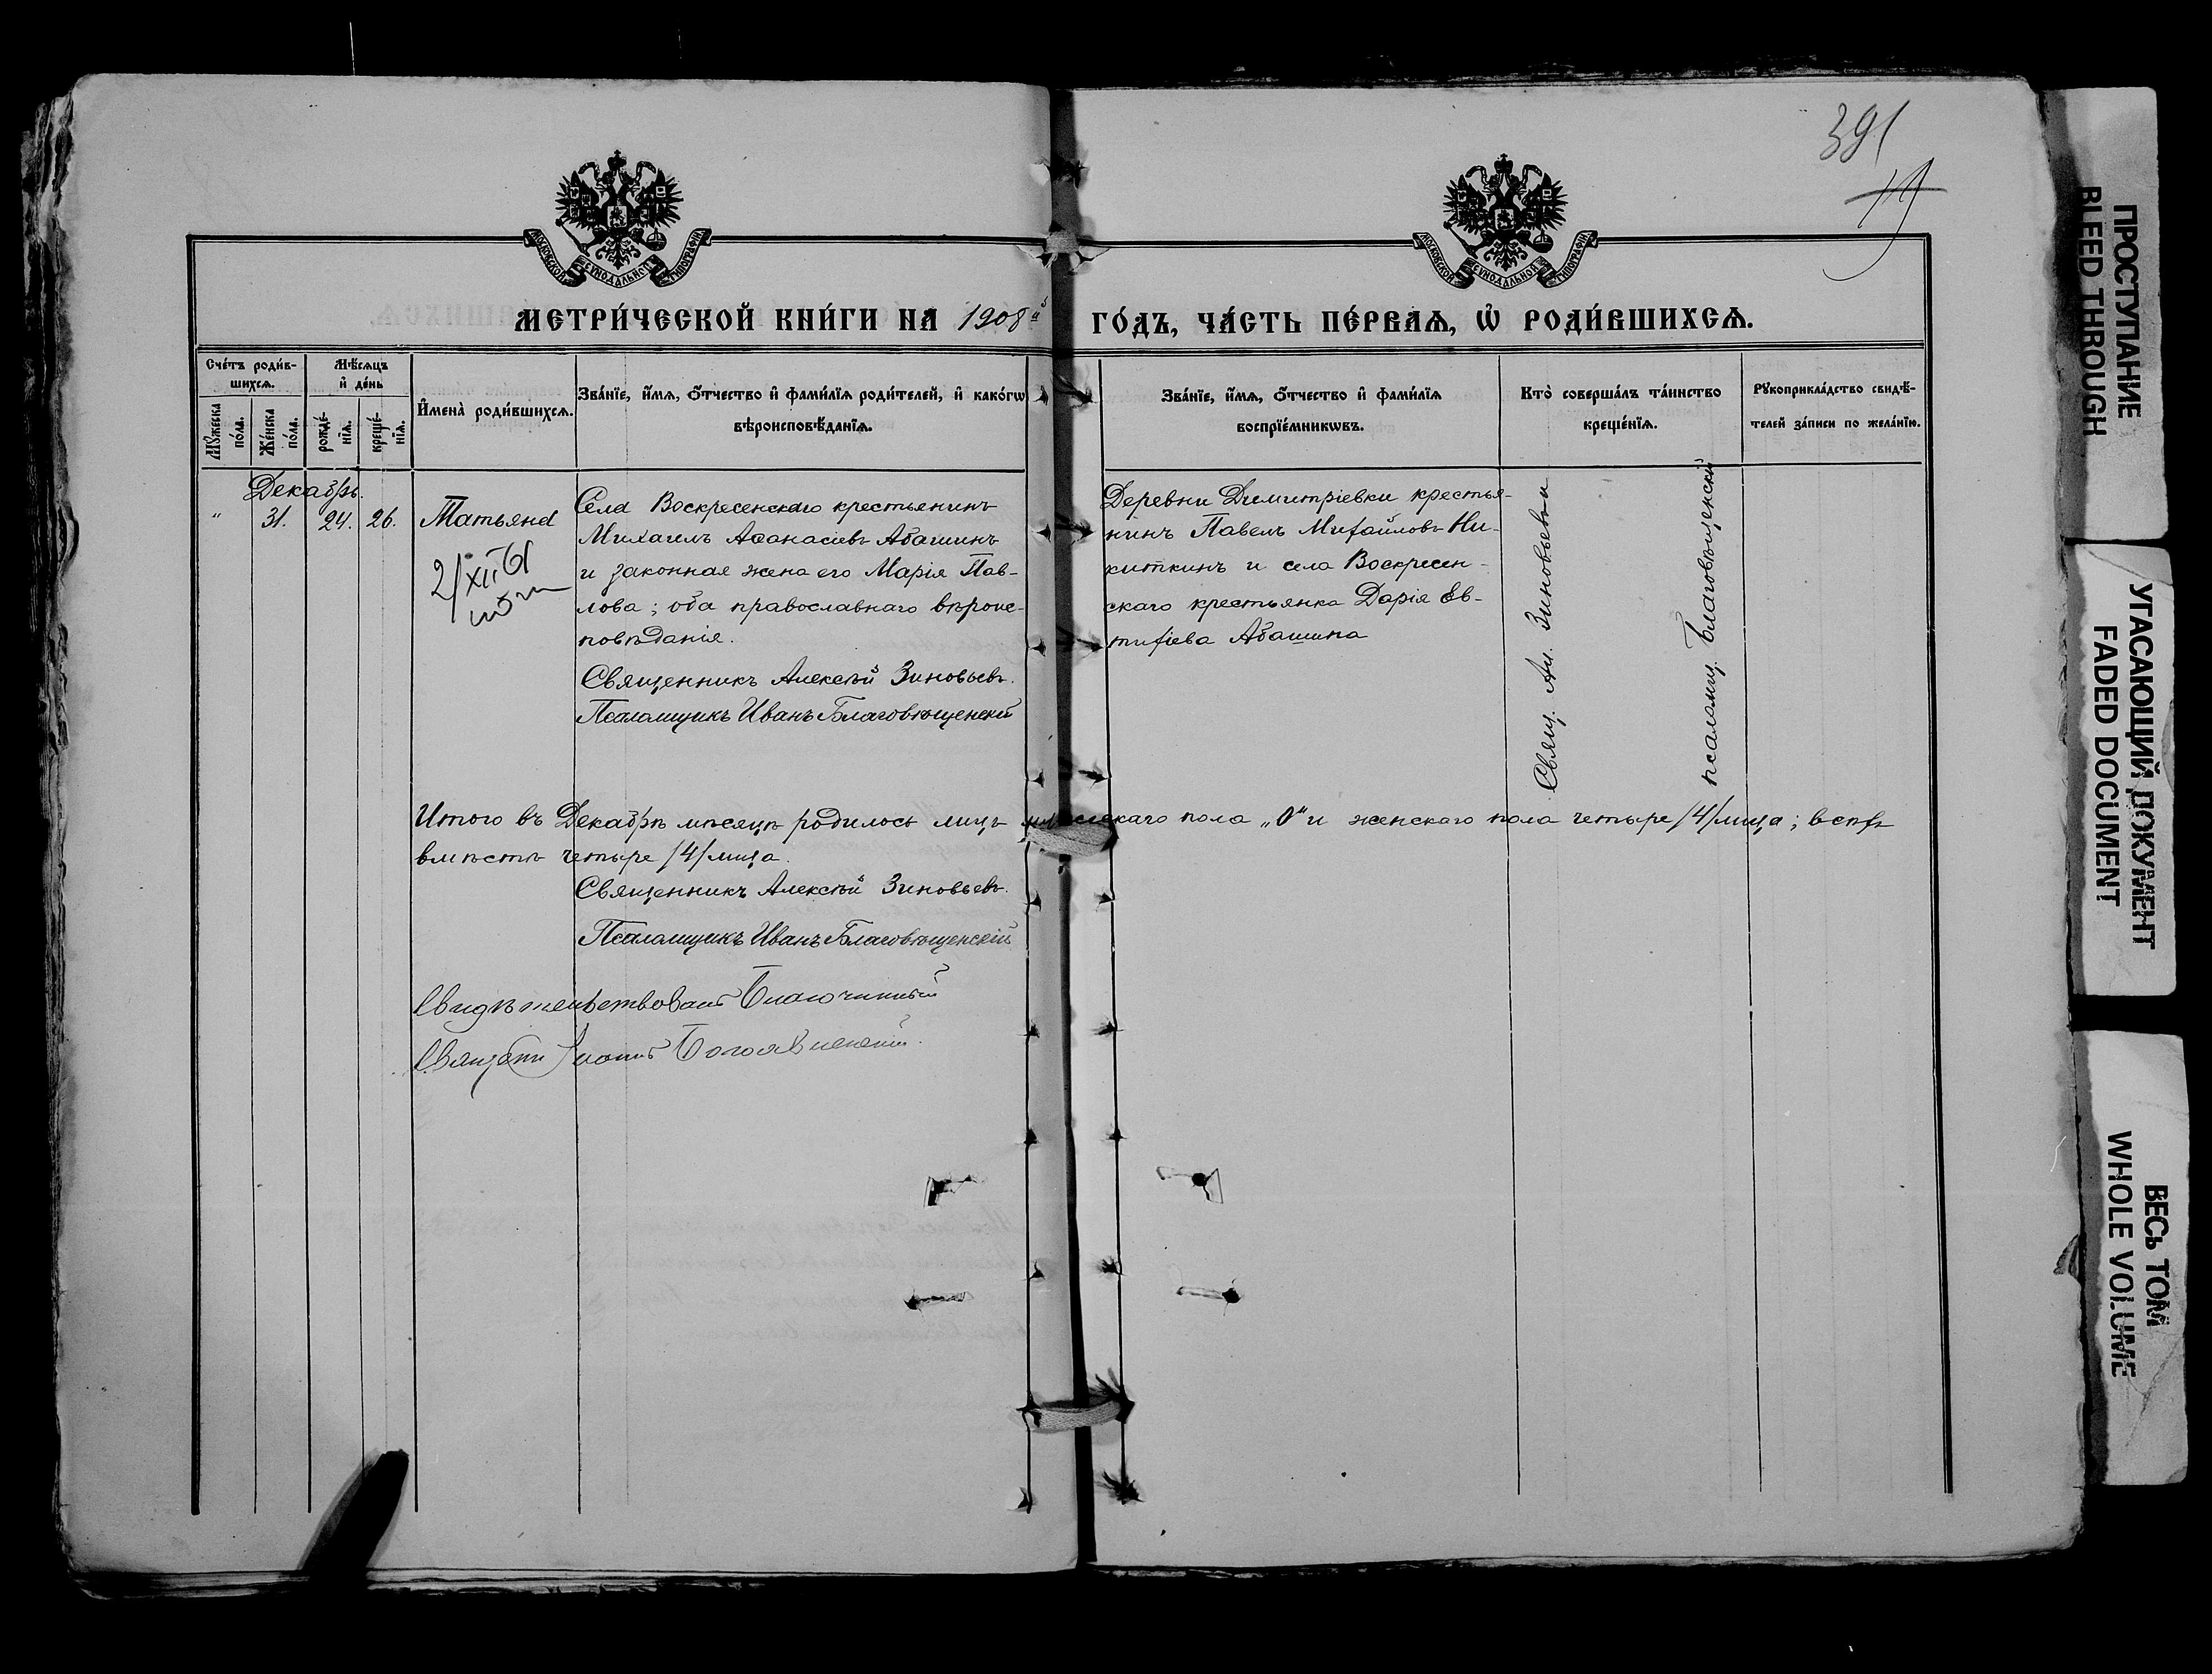 391
19
МОСКОВСКОЙ СѴНОДАЛЬНОЙ ТИПОГРАФІИ
МОСКОВСКОЙ СѴНОДАЛЬНОЙ ТИПОГРАФІИ
МЕТРИ́ЧЕСКОЙ КНИ́ГИ НА 1908й ГО́ДЪ, ЧА́СТЬ ПЕ́РВАѦ, Ѡ҆ РОДИ́ВШИХСѦ.
Сче́тъ роди́в-
шихсѧ.
Мѣ́сѧцъ
и҆ де́нь
Мꙋ́жеска
по́ла.
Же́нска
по́ла.
рожде́-
нїѧ.
креще́-
нїѧ.
И҆мена̀ роди́вшихсѧ.
Зва́нїе, и҆́мѧ, ѻ҆́тчество и҆ фами́лїѧ роди́телей, и҆ како́гѡ
вѣроисповѣ́данїѧ.
Зва́нїе, и҆́мѧ, ѻ҆́тчество и҆ фами́лїѧ
воспрїе́мникѡвъ.
Кто̀ соверша́лъ та́инство
креще́нїѧ.
Рꙋкоприкла́дство свидѣ́-
телей за́писи по жела́нїю.
Декабрь.
" 31. 24. 26. Татьяна
2/XII 61
Села Воскресенскаго крестьянинъ
Михаилъ Аѳанасіевъ Абашинъ
и законная жена его Марія Пав-
лова; оба православнаго вѣроис-
повѣданія.
Священникъ Алексѣй Зиновьевъ.
Псаломщикъ Иванъ Благовѣщенскій
Деревни Димитріевки крестья-
нинъ Павелъ Михайловъ Ни-
киткинъ и села Воскресен-
скаго крестьянка Дарія Ев-
тихіева Абашина
Свящ. Ал. Зиновьевъ и
псаломщ. Благовѣщенскій
Итого въ Декабрѣ мѣсяцѣ родилось лицъ мужескаго пола „0" и женскаго пола четыре /4/ лица; всѣхъ
вмѣстѣ четыре /4/ лица.
Священникъ Алексѣй Зиновьевъ.
Псаломщикъ Иванъ Благовѣщенскій
Свидѣтельствовалъ Благочинный
Священ Іоаннъ Богоявленскій.
ПРОСТУПАНИЕ
BLEED THROUGH
УГАСАЮЩИЙ ДОКУМЕНТ
FADED DOCUMENT
ВЕСЬ ТОМ
WHOLE VOLUME